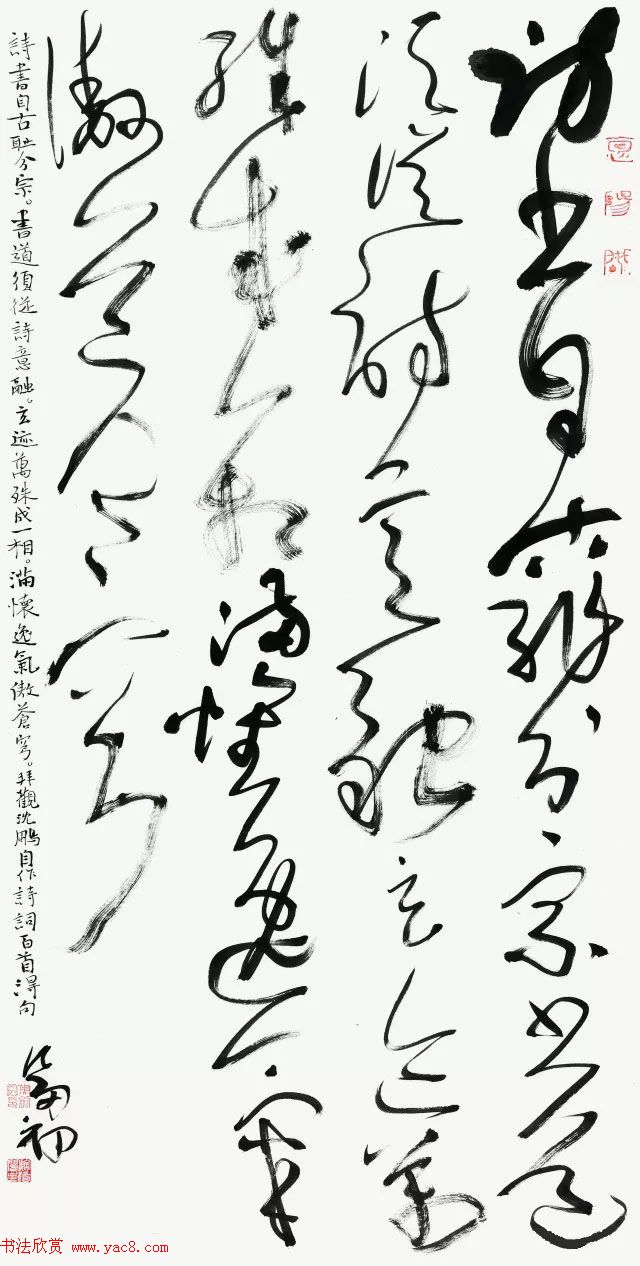 詩書自古耻分宗書道
須從詩意融玄迹萬
殊成一相滿懷逸氣
傲蒼穹
詩書自古耻分宗。書道須從詩意融。玄迹萬殊成一相。滿懷逸氣傲蒼穹。拜觀沈鵬自作詩詞百首得句
初
书法欣赏 www.yac8.com